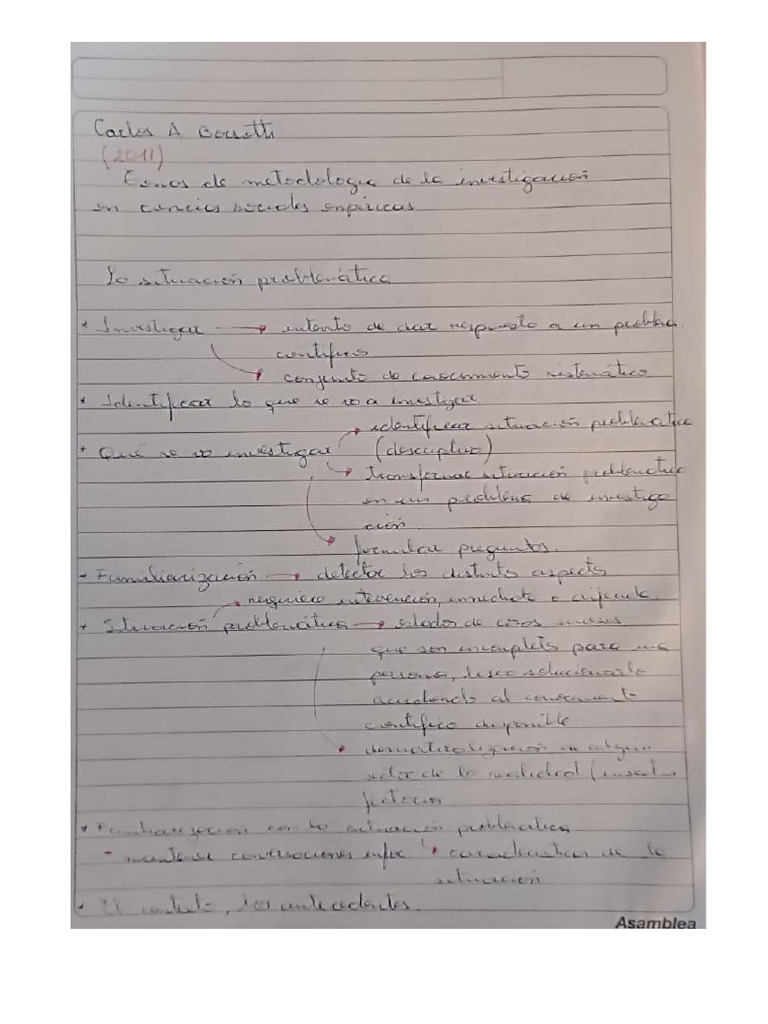 Carlos A Borsotti
(2011)
Temas de metodología de la investigación
en ciencias sociales empíricas
La situación problemática
* Investigar → intento de dar respuesta a un problema
científico
conjunto de conocimiento sistemático
* Identificar lo que se va a investigar
identificar situación problemática
* Qué se va investigar (descriptivo)
transformar situación problemática
en un problema de investiga
ción.
formular preguntas.
- Familiarización → detectar los distintos aspectos
requiere intervención, inmediata o
* Situación problemática → estados de cosas
que son incompletos para una
persona, desea solucionarlo
acudiendo al conocimiento
científico disponible
desnaturalización en algún
sector de la realidad
* Familiarización con la situación problemática
- conversaciones características de la
situación
* El contexto, los antecedentes.
Asamblea